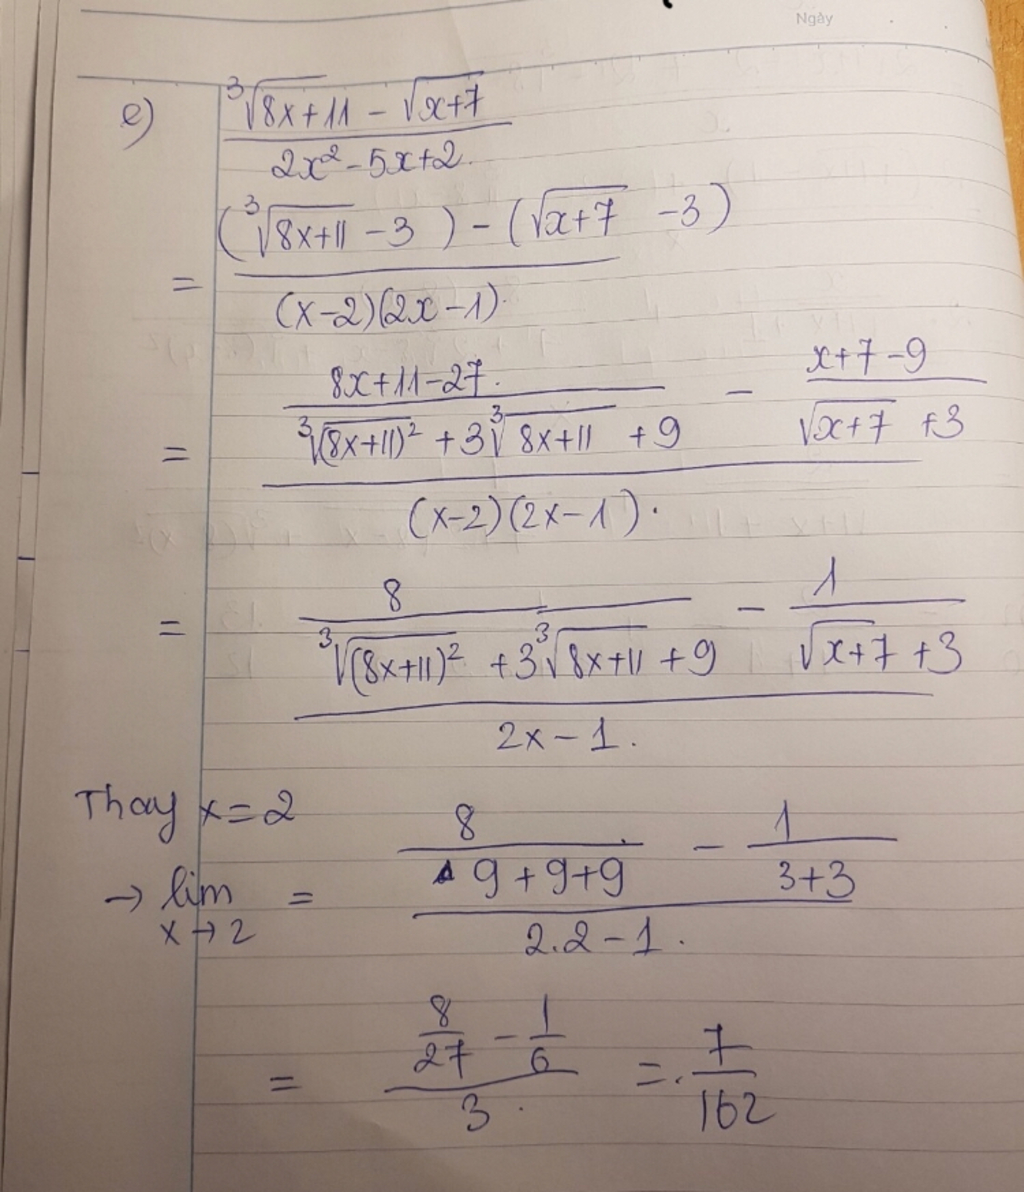 Ngày
e) \frac{\sqrt[3]{8x+11} - \sqrt{x+7}}{2x^2-5x+2}
= \frac{(\sqrt[3]{8x+11} - 3) - (\sqrt{x+7} - 3)}{(x-2)(2x-1)}
= \frac{\frac{8x+11-27}{\sqrt[3]{(8x+11)^2} + 3\sqrt[3]{8x+11} + 9} - \frac{x+7-9}{\sqrt{x+7} + 3}}{(x-2)(2x-1)}
= \frac{\frac{8}{\sqrt[3]{(8x+11)^2} + 3\sqrt[3]{8x+11} + 9} - \frac{1}{\sqrt{x+7} + 3}}{2x-1}
Thay x = 2
→ \lim_{x→2} = \frac{\frac{8}{9+9+9} - \frac{1}{3+3}}{2.2-1}
= \frac{\frac{8}{27} - \frac{1}{6}}{3} = \frac{7}{162}